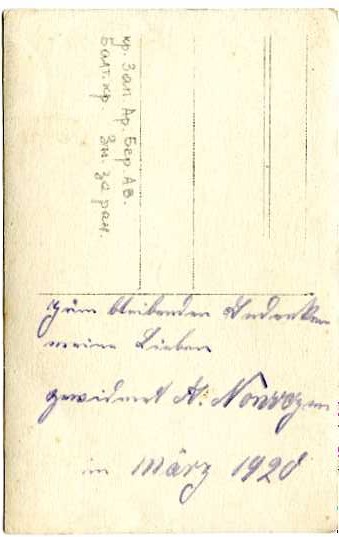 кр. Зап Ар. Бер. Ав.
Балт. кр. Зн. за ран.
Zum bleibenden Andenken
meine Lieben
gewidmet A.
im März 1920